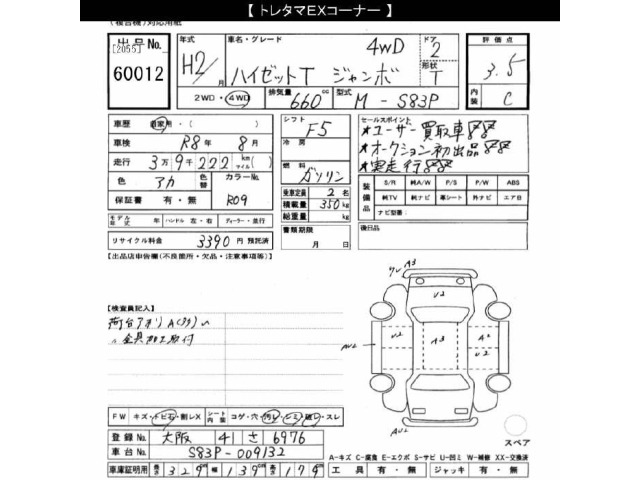 【 トレタマEXコーナー 】
(複合機)対応用紙
出品No.
[2055]
60012
年式 H2/月
車名・グレード 4WD
ハイゼットT ジャンボ
ドア 2
形状 T
評価点 3.5
内装 C
2WD・4WD
排気量 660cc
型式 M-S83P
車歴 自家用・( )
車検 R8年 8月
走行 3万9千222km(マイル)
色 アカ 色替
カラーNo. R09
保証書 有・無
モデル年式 年 ハンドル 左・右 ディーラー・並行
リサイクル料金 3390円 預託済
シフト F5
冷房
燃料 ガソリン
乗車定員 2名
積載量 350kg
総重量 kg
書類期限 月 日
セールスポイント
★ユーザー買取車
★オークション初出品
★実走行
装備品
S/R 純A/W P/S P/W ABS
純TV 純ナビ 革シート 外ナビ エア B
ナビ型番:
後日品
【出品店申告欄(不良箇所・欠品・注意事項等)】
【検査員記入】
荷台アオリA(スリ)
〃 金具加工取付
A3
U2
A3
U2
A2
U2
AU2
AU2
スペア
FW キズ・トビ石・割レX
シート内装 コゲ・穴・汚レ・シミ・破レ・スレ
登録No. 大阪 41 さ 6976
車台No. S83P-009132
車庫証明用 長さ 329 幅 139 高さ 179
A-キズ C-腐食 E-エクボ S-サビ U-凹ミ W-補修 XX-交換済
工具 有・無 ジャッキ 有・無